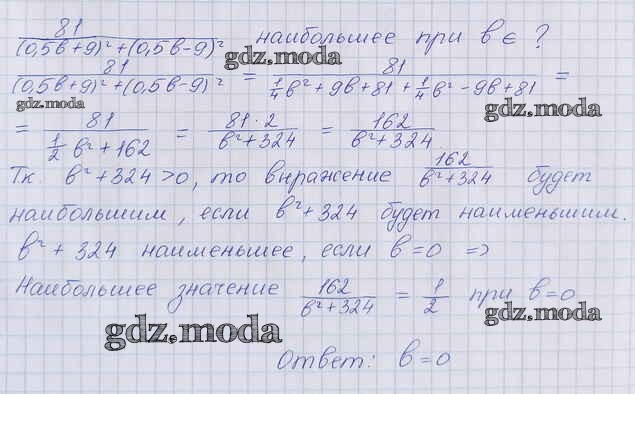 81 / ((0,5в+9)² + (0,5в-9)²) наибольшее при в ∈ ?
gdz.moda
81 / ((0,5в+9)² + (0,5в-9)²) = 81 / (1/4 в² + 9в + 81 + 1/4 в² - 9в + 81) =
gdz.moda
gdz.moda
= 81 / (1/2 в² + 162) = 81·2 / (в² + 324) = 162 / (в² + 324)
Тк. в² + 324 > 0, то выражение 162 / (в² + 324) будет
наибольшим, если в² + 324 будет наименьшим.
в² + 324 наименьшее, если в = 0 =>
Наибольшее значение 162 / (в² + 324) = 1/2 при в = 0
gdz.moda
gdz.moda
Ответ: в = 0